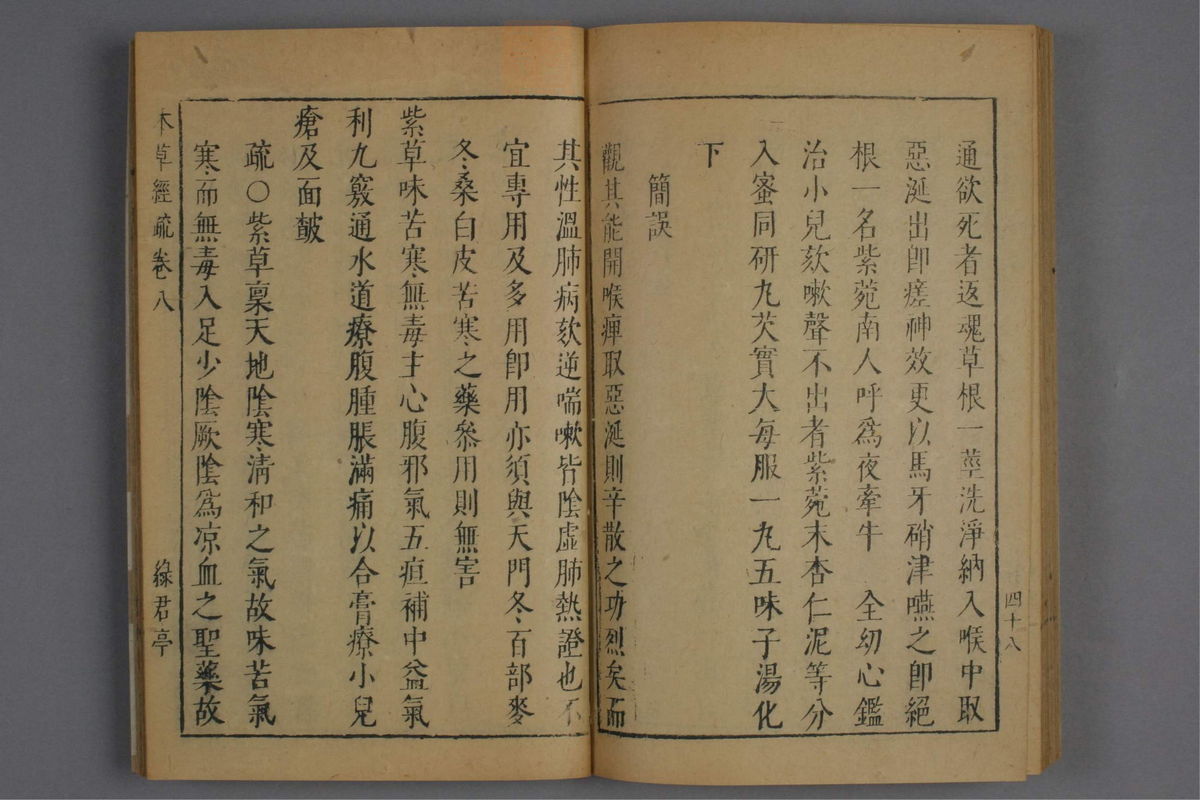 四十八
通欲死者返魂草根一莖洗淨納入喉中取
惡涎出卽瘥神效更以馬牙硝津嚥之卽絕
根一名紫菀南人呼爲夜牽牛　全幼心鑑
治小兒欬嗽聲不出者紫菀末杏仁泥等分
入蜜同研丸芡實大每服一丸五味子湯化
下
簡誤
觀其能開喉痺取惡涎則辛散之功烈矣而
其性溫肺病欬逆喘嗽皆陰虛肺熱證也不
宜專用及多用卽用亦須與天門冬百部麥
冬桑白皮苦寒之藥參用則無害
紫草味苦寒無毒主心腹邪氣五疸補中益氣
利九竅通水道療腹腫脹滿痛以合膏療小兒
瘡及面皶
疏○紫草稟天地陰寒淸和之氣故味苦氣
寒而無毒入足少陰厥陰爲凉血之聖藥故
本草經疏卷八　綠君亭